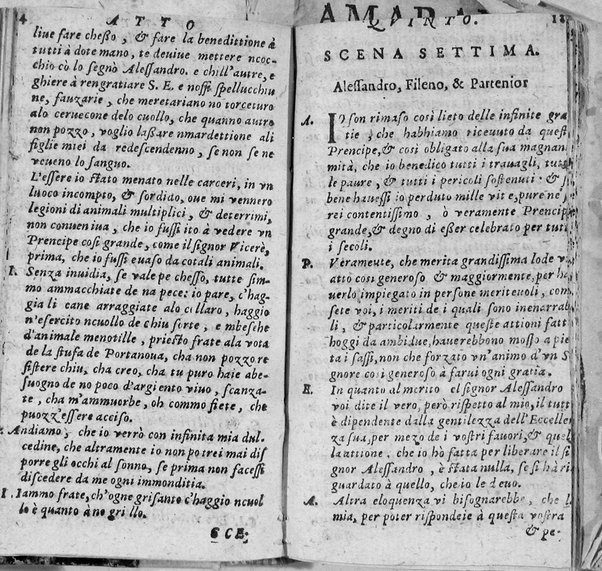 4 ATTO
liue fare chesso, & fare la benedittione à
tutti à dote mano, te deuiue mettere ncoc-
chio cò lo segnò Alessandro. e chill'autre, e
ghiere à rengratiare S. E. e nosse spellucchiu
ne, fauzarie, che meretariano no torceturo
alo ceruecone delo cuollo, che quanno autro
non pozzo, voglio lassare nmardettione ali
figlie miei da redescendenno, se non se ne
veueno lo sanguo.
L'essere io stato menato nelle carceri, in vn
luoco incompto, & sordido, oue mi vennero
legioni di animali multiplici, & deterrimi,
non conueniua, che io fussi ito à vedere vn
Prencipe così grande, come il signor Vicerè,
prima, che io fussi euaso da cotali animali.
I. Senza inuidia, se vale pe chesso, tutte sim-
mo ammacchiate de na pece: io pare, c'hag-
gia li cane arraggiate alo collaro, haggio
n'esercito ncuollo de chiu sorte, e mbesche
d'animale menotille, priesto frate ala vota
de la stufa de Portanoua, cha non pozzo re
sistere chiu, cha creo, cha tu puro haie abe-
suogno de no poco d'argiento viuo, scanza-
te, cha m'ammuorbe, oh commo fiete, che
puozz'essere acciso.
Andiamo, che io verrò con infinita mia dul-
cedine, che altramente io non potrei mai dis
porre gli occhi al sonno, se prima non facessi
discedere da me ogni immonditia.
I. Iammo frate, ch'ogne grisanto c'haggio ncuol
lo è quanto à no grillo.
SCE-
AMARAN
QVINTO. 18
SCENA SETTIMA.
Alessandro, Fileno, & Partenior
A. IO son rimaso così lieto delle infinite gra
tie, che habbiamo riceuuto da questi
Prencipe, & così obligato alla sua magnan
mità, che io benedico tutti i trauagli, tutte
le paure, & tutti i pericoli sostenuti. & s
bene hauessi io perduto mille vite, pure ne s
rei contentissimo, ò veramente Prencipe
grande, & degno di esser celebrato per tutti
i secoli.
P. Veramente, che merita grandissima lode v
atto così generoso & maggiormente, per ha
uerlo impiegato in persone meriteuoli, com
sete voi, i meriti de i quali sono inenarrab
li, & particolarmente queste attioni fatte
hoggi da ambidue, hauerebbono mosso a pie
tà i sassi, non che forzato vn'animo d'vn S
gnore così generoso à farui ogni gratia.
F. In quanto al merito el signor Alessandro
voi dite il vero, però rispetto al mio, il tutto
è dipendente dalla gentilezza dell'Eccellen
za sua, per mezo de i vostri fauori, & quel
la attione. che io hò fatta per liberare il si
gnor Alessandro, è stata nulla, se si hà ri
guardato à quello, che io le deuo.
A. Altra eloquenza vi bisognarebbe, che l
mia, per poter rispondere à questa vostra
& pe-